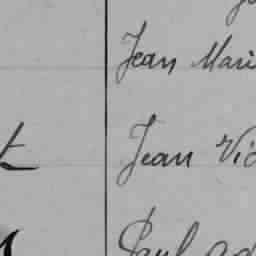 Jean Mari
t Jean Vic
Paul Ad